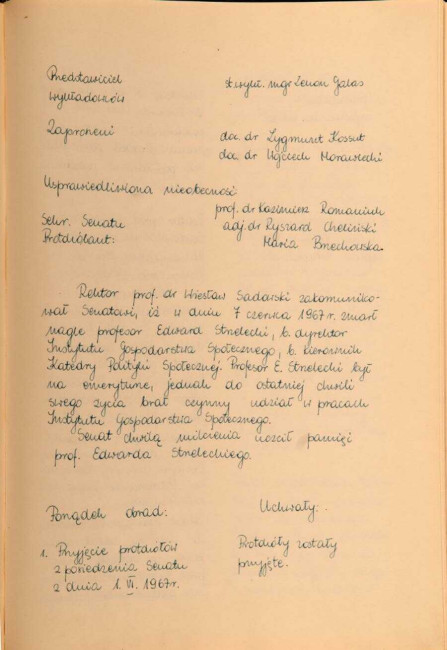 Przedstawiciel st. wykł. mgr Zenon Gałas
wykładowców
Zaproszeni doc. dr Zygmunt Kossut
doc. dr Wojciech Morawiecki
Usprawiedliwiona nieobecność
prof. dr Kazimierz Romaniuk
Sekr. Senatu adj. dr Ryszard Chełiński
Protokółant: Maria Brzechowska
Rektor prof. dr Wiesław Sadowski zakomuniko-
wał Senatowi, iż w dniu 7 czerwca 1967 r. zmarł
nagle profesor Edward Strzelecki, b. dyrektor
Instytutu Gospodarstwa Społecznego, b. kierownik
Katedry Polityki Społecznej. Profesor E. Strzelecki był
na emeryturze, jednak do ostatniej chwili
swego życia brał czynny udział w pracach
Instytutu Gospodarstwa Społecznego.
Senat chwilą milczenia uczcił pamięć
prof. Edwarda Strzeleckiego.
Porządek obrad: Uchwały:
1. Przyjęcie protokółów Protokóły zostały
z posiedzenia Senatu przyjęte.
z dnia 1. VI. 1967 r.